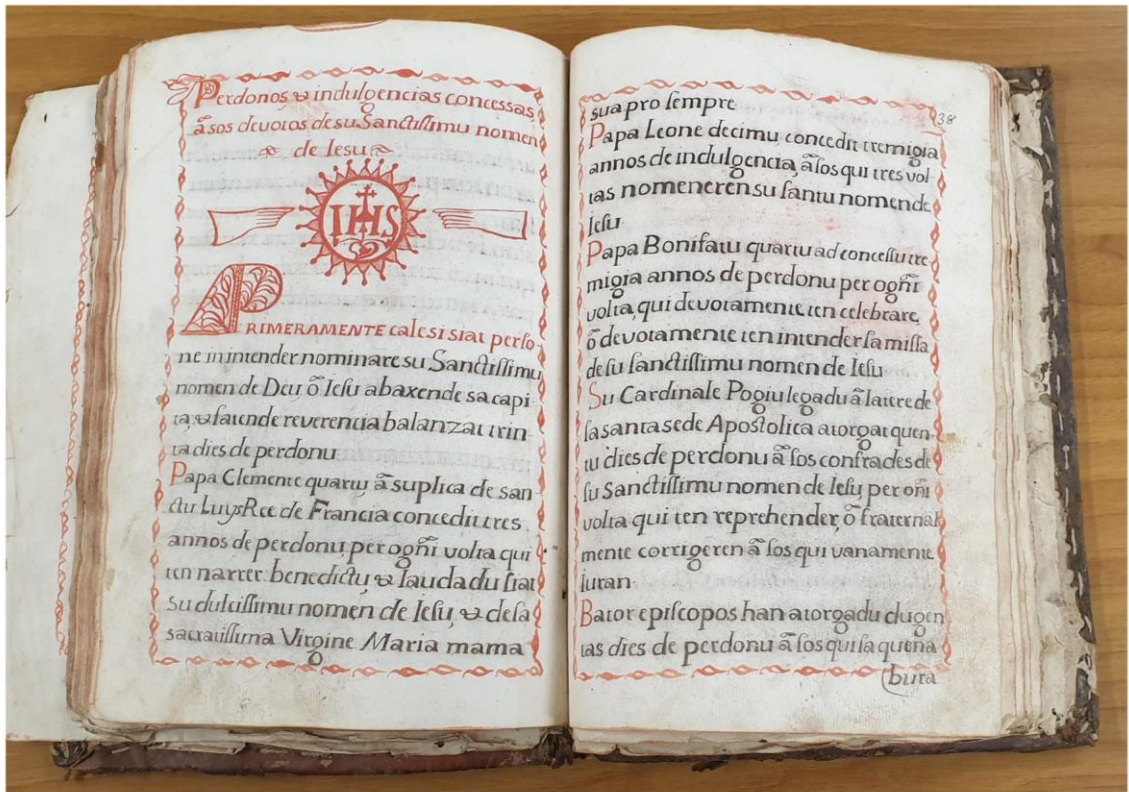 Perdonos & indulgencias concessas,
â sos devotos de su Sanctissimu nomen
de Iesu
IHS
PRIMERAMENTE calesisiat perso-
ne in intender nominare su Sanctissimu
nomen de Deu ô Iesu abaxende sa capi
ta, & fatende reverencia balanzat trin
ta dies de perdonu
Papa Clemente quartu â suplica de san
ctu Luys Ree de Francia concedit tres
annos de perdonu per ogñi volta qui
ten narrer benedictu & laudadu siat
su dulcissimu nomen de Iesu, & de sa
sacratissima Virgine Maria mama
38
sua pro sempre
Papa Leone decimu concedit tremigia
annos de indulgencia, â sos qui tres vol
tas nomeneren su santu nomen de
Iesu
Papa Bonifatu quartu ad concessu tre
migia annos de perdonu per ogñi
volta, qui devotamente ten celebrare,
ô devotamente ten intender sa missa
de su sanctissimu nomen de Iesu
Su Cardinale Pogiu legadu â latere de
sa santa sede Apostolica atorgat quen-
tu dies de perdonu â sos confrades de
su Sanctissimu nomen de Iesu, per oñi
volta qui ten reprehender, ô fraternal
mente corrigeren â sos qui vanamente
iuran
Bator episcopos han atorgadu dugen
tas dies de perdonu â sos qui sa queña
bura